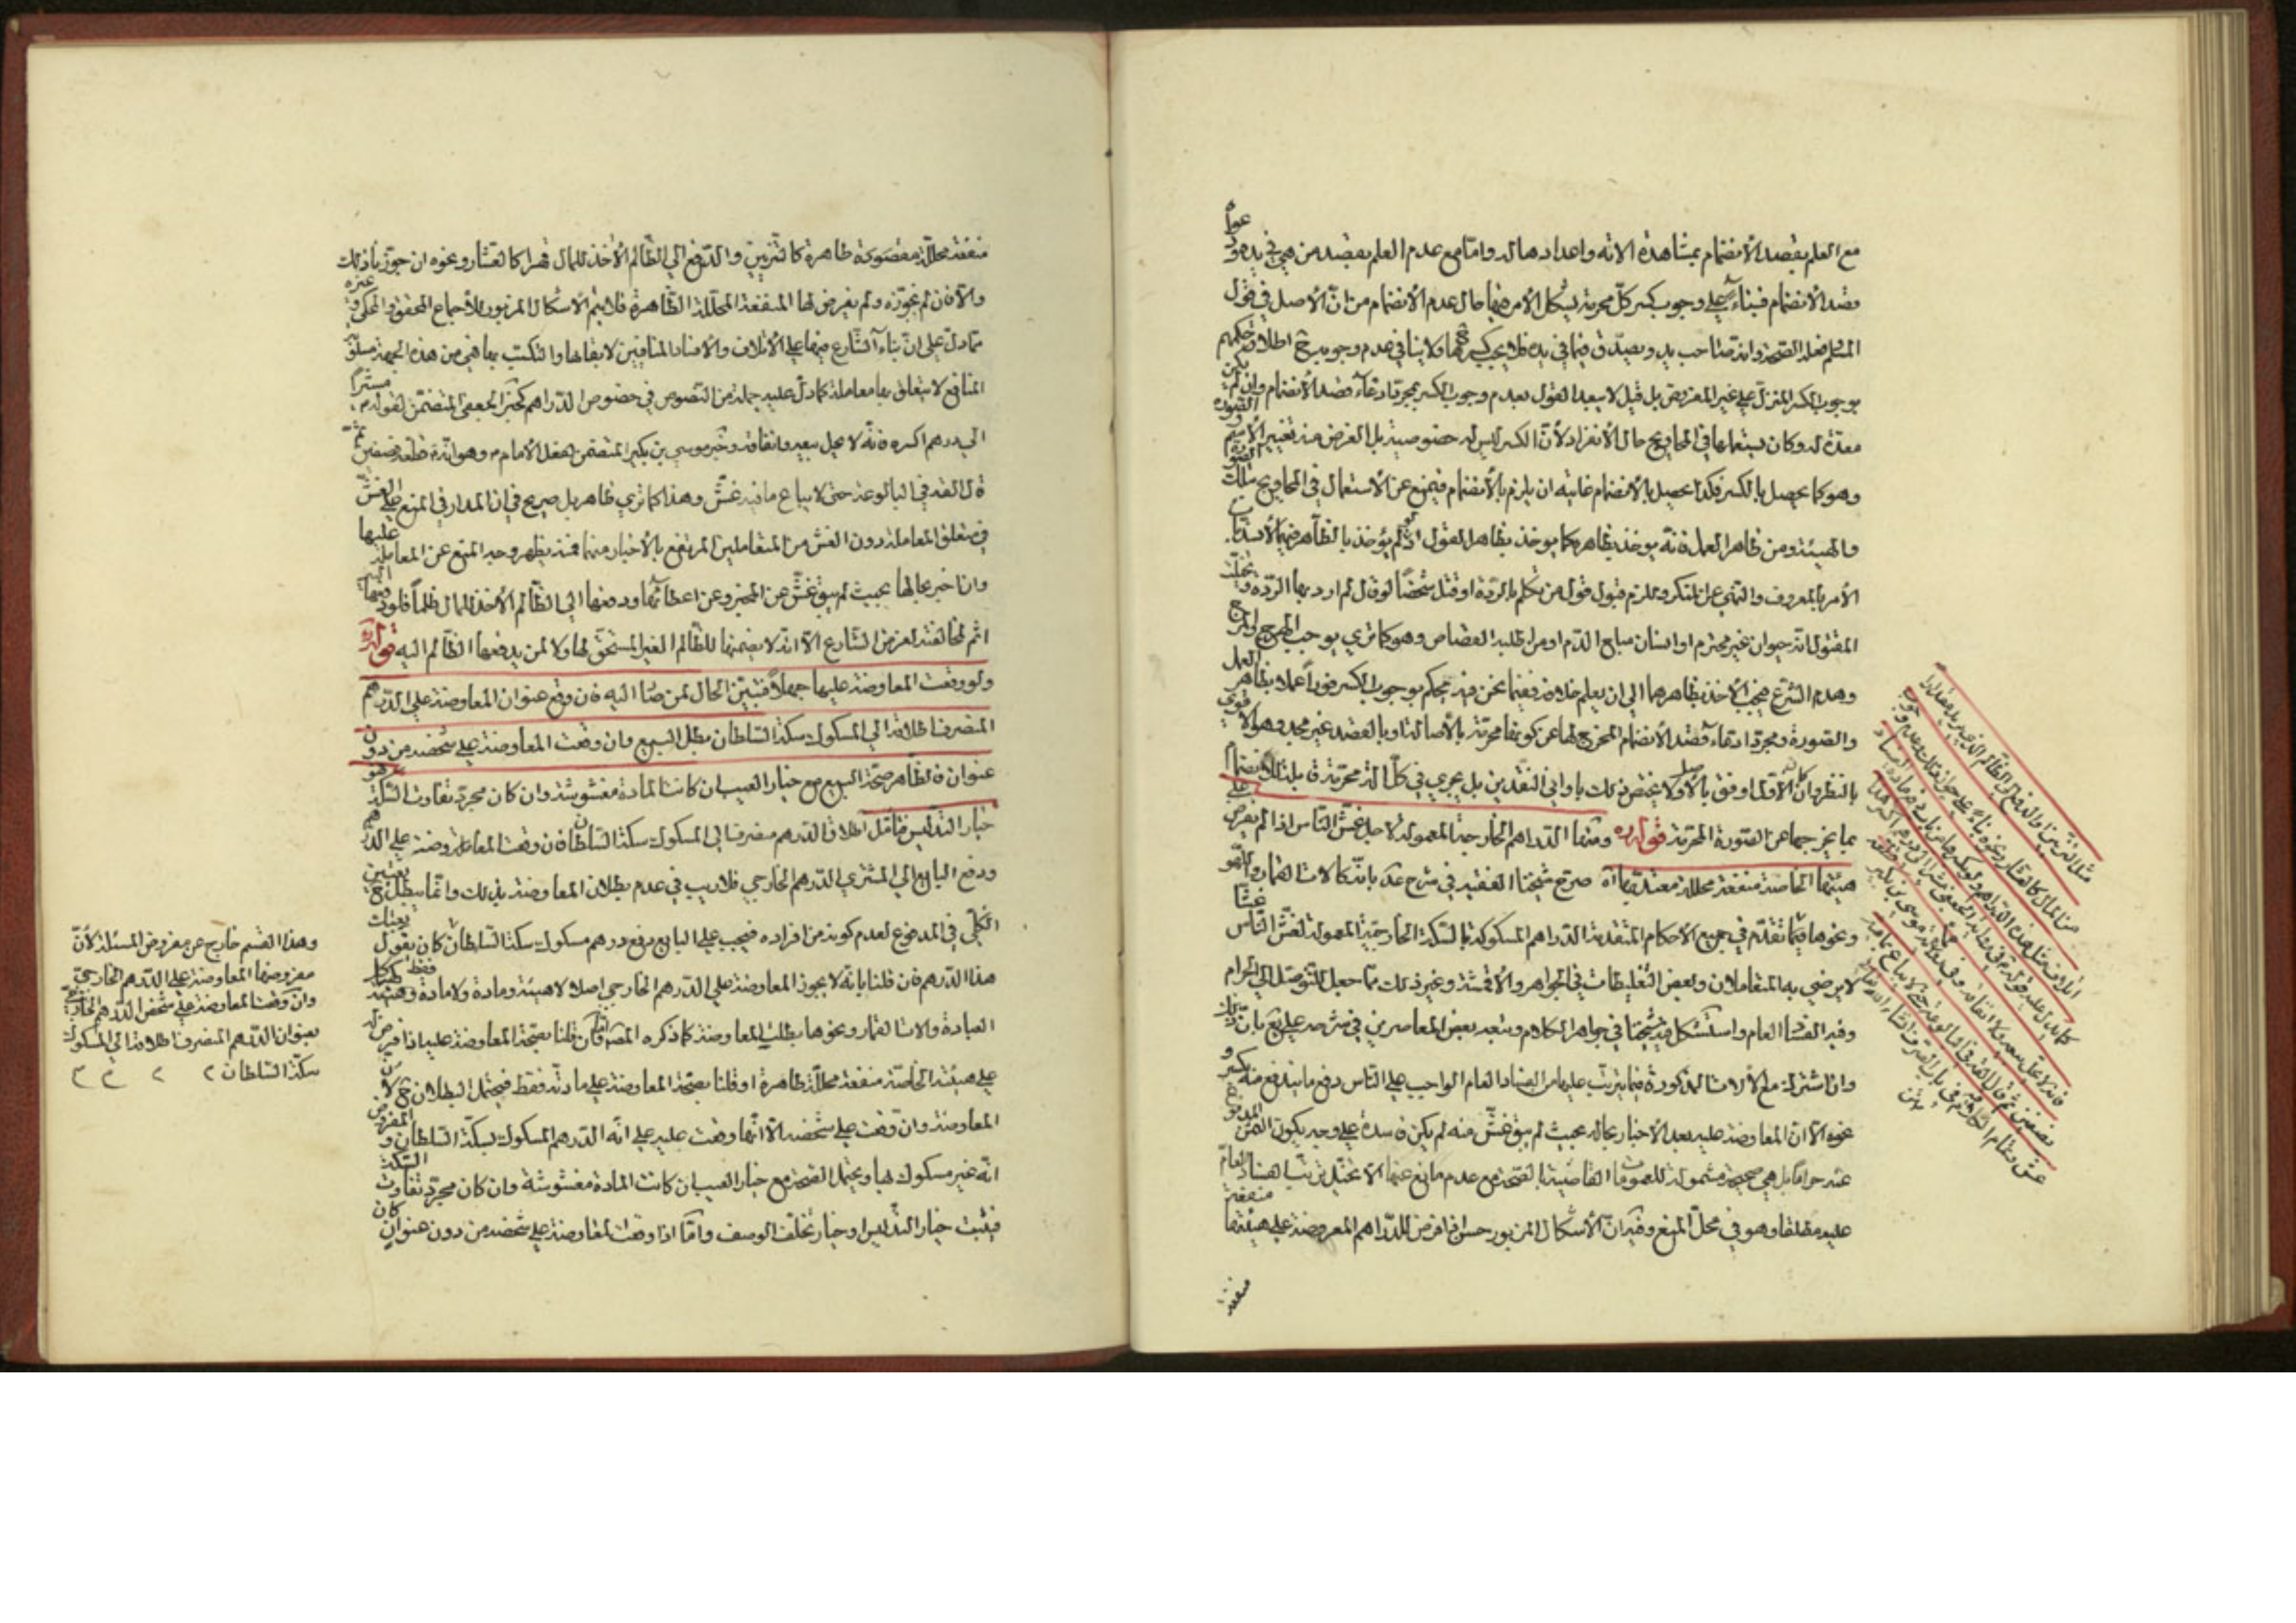 مع العلم بقصد الانضمام بمشاهدة الاته واعدادها له وامّا مع عدم العلم بقصد من هي في يده
قصد الانضمام فبناء على وجوب كسر كلّ محرمة يشكل الامر فيها حال عدم الانضمام من انّ الاصل في قول
المسلم فعله الصّحة وانه صاحب يد ويصدّق فيما في يده فلا يجب كسرها ولا ينافي عدم وجوبه ح اطلاق حكمهم
بوجوب الكسر المنزل على غير المفروض بل قيل لا سبعد القول بعدم وجوب الكسر بمجرّد ادعاء قصد الانضمام وان لم يكن
معدّة له وكان يستعملها في المحاويج حال الانفراد لانّ الكسر ليس له خصوصية بل الغرض منه تغيير
وهو كما يحصل بالكسر فكذا يحصل بالانضمام غايته ان يلزم بالانضمام فيمنع عن الاستعمال في المحاويج بتلك
والهيئة ومن ظاهر العمل فانه يوخذ بظاهره كما يوخذ بظاهر القول اذ لو لم يؤخذ بالظاهر فيهما لانسدّ باب
الامر بالمعروف والنهي عن المنكر وللزم قبول قول من تكلم بالردّة او قتل شخصا لو قال لم ارد بها الردّة وتخيّلت
المقتول انه حيوان غير محترم او انسان مباح الدّم او من اطلبه القصاص وهو كما ترى يوجب الهرج والمرج
وهدم الشرع فيجب الاخذ بظاهرهما الى ان يعلم خلافه ففيما نحن فيه يحكم بوجوب الكسر فورا عملا بظاهر العمل
والصّورة ومجرّد ادعاء قصد الانضمام المخرج لها عن كونها محرّمة بالاصالة او بالقصد غير مجد وهو الاقوى
بالنظر وان كان الاوّل اوفق بالاصل ولا يختص ذلك باواني النقدين بل يجري في كلّ الة محرّمة قابلة للانضمام
بما يخرجها عن الصّورة المحرّمة قوله ره ومنها الدراهم الخارجة المعمولة لاجل غشّ الناس اذا لم يفرض على
هيئتها الخاصة منفعة محللة معتد بها اه صرح شيخنا الفقيه في شرح عد بانّه كالات القمار والملهو
ونحوها فيما تقدّم في جميع الاحكام المتقدمة الدراهم المسكوكة بالسّكة الخارجيّة المعمولة لغشّ الناس غشّا
لا يرضى به المتعاملان وبعض التغليظات في الجواهر والاقمشة وغير ذلك ممّا جعل للتوصّل الى الحرام
وفيه الفساد العام واستشكل فيه شيخنا في جواهر الكلام وتبعه بعض المعاصرين في شرحه على يع بانّ ذلك
وان اشترك مع الالات المذكورة فيما يترتّب عليها من الفساد العام الواجب على الناس دفع ما يندفع منه بكسر
نحوه الا ان المعاوضة عليه بعد الاخبار بحاله بحيث لم يبق غشّ منه لم يكن فاسدة على وجه يكون الثمن
عنه حراما بل هي صحيحة مشمولة للعمومات القاضية بالصّحة مع عدم مانع عنها الا تخيّل ترتّب الفساد العام
عليه مطلقا وهو في محلّ المنع وفيه انّ الاشكال المزبور حسن اذا فرض للدّراهم المعروضة على هيئتها منفعة
منفعة
مثل التزيين والدفع الى الظّالم الذي يريد مقدارا
من المال كالعشار ونحوه بناء على جواز ذلك
اتلاف مثل هذه الدراهم ولو بكسرها من باب دفع مادة الفساد
كما يدلّ عليه قوله ع في رواية الجعفي مشيرا الى درهم اكسر هذا
فانه لا يحلّ بيعه ولا انفاقه وفي رواية موسى بن بكير قطعه
بنصفين ثم قال القه في البالوعة حتى لا يباع بما فيه
غش وتمام الكلام فيه في باب الصرف انشاء الله
منفعة محللة مقصودة ظاهرة كالتزيين والدّفع الى الظّالم الاخذ للمال قهرا كالعشار ونحوه ان جوزنا ذلك
والا فان لم نجوّزه ولم يفرض لها المنفعة المحلّلة الظّاهرة فلا يتم الاشكال المزبور للاجماع المحقق والمحكي وغيره
ممّا دلّ على انّ بناء الشّارع فيها على الاتلاف والافناء المنافيين لابقائها والتكسّب بها فهي من هذه الجهة مسلوبة
المنافع لا يتعلّق بها معاملة كما دلّ عليه جملة من النّصوص في خصوص الدّراهم كخبر الجعفي المتضمّن لقوله ع مشيرا
الى درهم اكسره فانّه لا يحل بيعه وانفاقه وخبر موسى بن بكير المتضمّن لفعل الامام ع وهو انّه قطعه نصفين ثم
قال القه في البالوعة حتى لا يباع ما فيه غشّ وهذا كما ترى ظاهر بل صريح في ان المدار في المنع على الغشّ
في متعلق المعاملة دون الغش من المتعاملين المرتفع بالاخبار منهما فمنه يظهر وجه المنع عن المعاملة عليها
وان اخبر بحالها بحيث لم يبق غشّ عن المخبر وعن اعطائها ودفعها الى الظّالم الاخذ للمال ظلما فلو دفعها اليه
اثم لمخالفته لغرض الشّارع الا انه لا يضمنها للظّالم الغير المستحقّ لها ولا لمن يدفعها الظّالم اليه قوله ره
ولو وقعت المعاوضة عليها جهلا فتبيّن الحال لمن صار اليه فان وقع عنوان المعاوضة على الدّرهم
المنصرف اطلاقه الى المسكوك سكة السّلطان بطل البيع وان وقعت المعاوضة على شخصه من دون
عنوان فالظّاهر صحّة البيع مع خيار العيب ان كانت المادة مغشوشة وان كان مجرّد تفاوت السّكة فهو
خيار التدليس فتأمّل اطلاق الدّرهم منصرف الى المسكوك سكة السّلطان فان وقعت المعاوضة على الدّرهم
ودفع البايع الى المشتري الدّرهم الخارجي فلا ريب في عدم بطلان المعاوضة بذلك وانّما يبطل تعيين
الكلّي في المدفوع لعدم كونه من افراده فيجب على البايع دفع درهم مسكوك سكة السّلطان كان يقول بعتك
هذا الدّرهم فان قلنا بانّه لا يجوز المعاوضة على الدّرهم الخارجي اصلا لا هيئة ومادة ولا مادة فقط
العبادة والات القمار ونحوها بطلت المعاوضة كما ذكره المصنف وان قلنا بصحّة المعاوضة عليها اذا فرض له
على هيئته الخاصّة منفعة محلّلة ظاهرة او قلنا بصحّة المعاوضة على مادته فقط فيحتمل البطلان ح لانّ
المعاوضة وان وقعت على شخصه الا انّها وقعت عليه على انّه الدّرهم المسكوك بسكّة السّلطان والمفروض
انّه غير مسكوك بها ويحتمل الصّحة مع خيار العيب ان كانت المادة مغشوشة وان كان مجرّد تفاوت السّكة
فيثبت خيار التّدليس او خيار تخلّف الوصف وامّا اذا وقعت المعاوضة على شخصه من دون عنوان كان
وهذا القسم خارج عن مفروض المسئلة لانّ
مفروضها المعاوضة على الدّرهم الخارجي
وان وقعت المعاوضة على شخص الدّرهم الخارجي
بعنوان الدّرهم المنصرف اطلاقه الى المسكوك
سكة السّلطان